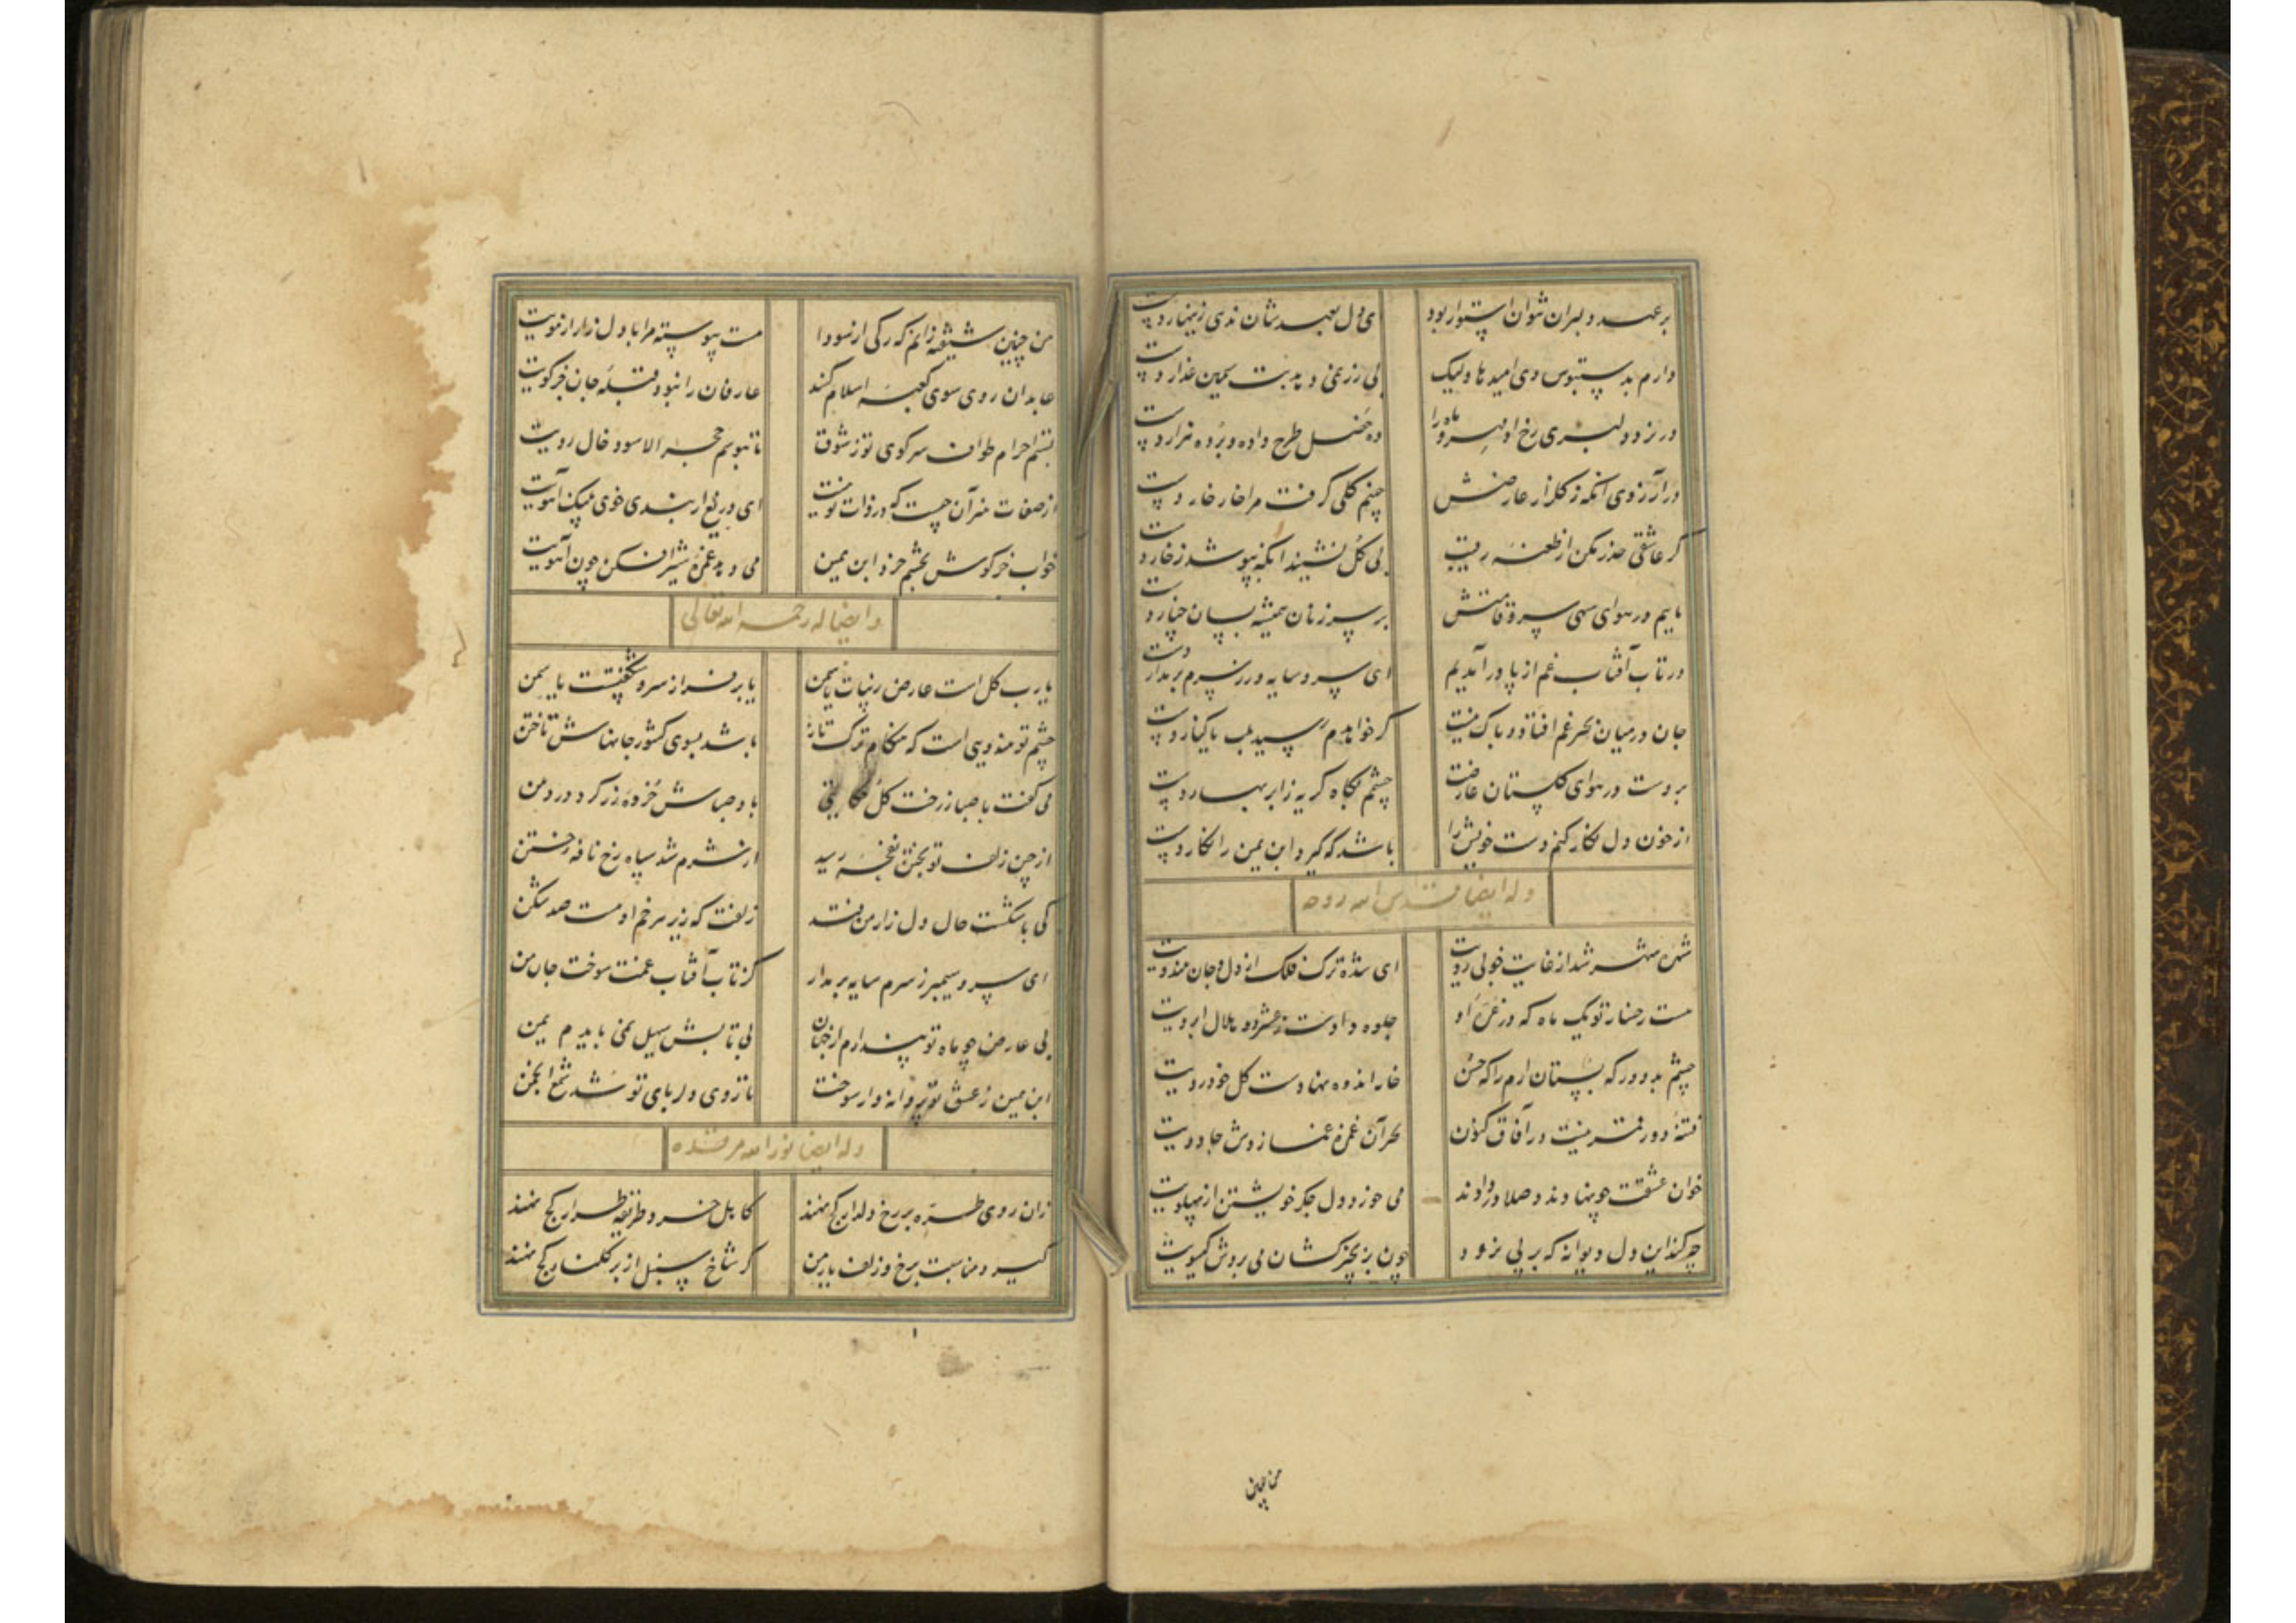 بر عهد دلبران نتوان استوار بود ای دل بعهدشان ندهی زینهار دست
دارم بدستبوس وی امیدها ولیک بی زر نمی دهد بت سیمین عذار دست
در نرد دلبری رخ او مهر و ماه را ده خصل طرح داده و برده هزار دست
در آرزوی آنکه ز گلزار عارضش چینم گلی گرفت مرا خار خار دست
گر عاشقی حذر مکن از طعنه رقیب بی گل نشیند آنکه بپوشد ز خار دست
مایم در هوای سهی سرو قامتش بر سر زنان همیشه بسان چنار دست
در تاب آفتاب غم از پا درآمدیم ای سرو سایه ور ز سرم بر مدار دست
جان در میان بحر غم افتاد و باک نیست گر خواهدم رسید بلب یا کنار دست
بردست در هوای گلستان عارضت چشمم بگاه گریه ز ابر بهار دست
از خون دل نگار کنم دست خویش را باشد که گیرد ابن یمین را نگار دست
وله ایضا قدس الله روحه
شهره شهر شد از غایت خوبی رویت ای شده ترک فلک از دل و جان هندویت
هست رخسار تو یک ماه که در غره او جلوه دادست ز عنبر دو هلال ابرویت
چشم بد دور که بستان ارم را که حسن خار اندوه نهادست گل خودرویت
فتنه دور قمر نیست در آفاق کنون بجز آن غمزه غماز وش جادویت
خوان عشقت چو نهادند و صلا در دادند می خورد دل جگر خویشتن از پهلویت
چه کند این دل دیوانه که بر پی نرود چون بزنجیر کشان می بردش گیسویت
من چنین
من چنین شیفته زانم که رگی از سودا هست پیوسته مرا با دل زار از مویت
عابدان روی سوی کعبه اسلام کنند عارفان را نبود قبله جان جز کویت
بستم احرام طواف سر کوی تو ز شوق تا ببوسم حجر الاسود خال رویت
از صفات هنر آن چیست که در ذات تو نیست ای دریغ ار بندی خوی نیک آهویت
خواب خرگوش بچشم خرد ابن یمین می دهد غمزه شیر افکن چون آهویت
وایضا له رحمه الله تعالی
یا رب گل است عارض زیبات یا سمن یا بر فراز سرو شکفتست یاسمن
چشم تو هندوی است که هنگام ترک تاز باشد بسوی کشور جانهاش تاختن
می گفت با صبا ز رخت گل باد صباش خرده زر کرد در دهن
از چین زلف تو بختن نفحه رسید از شرم شد سیاه رخ نافه ختن
کی با شکست حال دل زار من فتد زلفت که زیر هر خم او هست صد شکن
ای سرو سیمبر ز سرم سایه بر مدار کز تاب آفتاب غمت سوخت جان من
بی عارض چو ماه تو پندارم از جهان بی تابش سهیل نمی بایدم یمن
ابن یمین ز عشق تو پروانه وار سوخت تا روی دلربای تو شد شمع انجمن
وله ایضا نور الله مرقده
زان روی طره بر رخ دلدار کج نهند کاهل خرد وظیفه طرار کج نهند
گیرد مناسبت برخ و زلف یار من گر شاخ سنبل از بر گلنار کج نهند